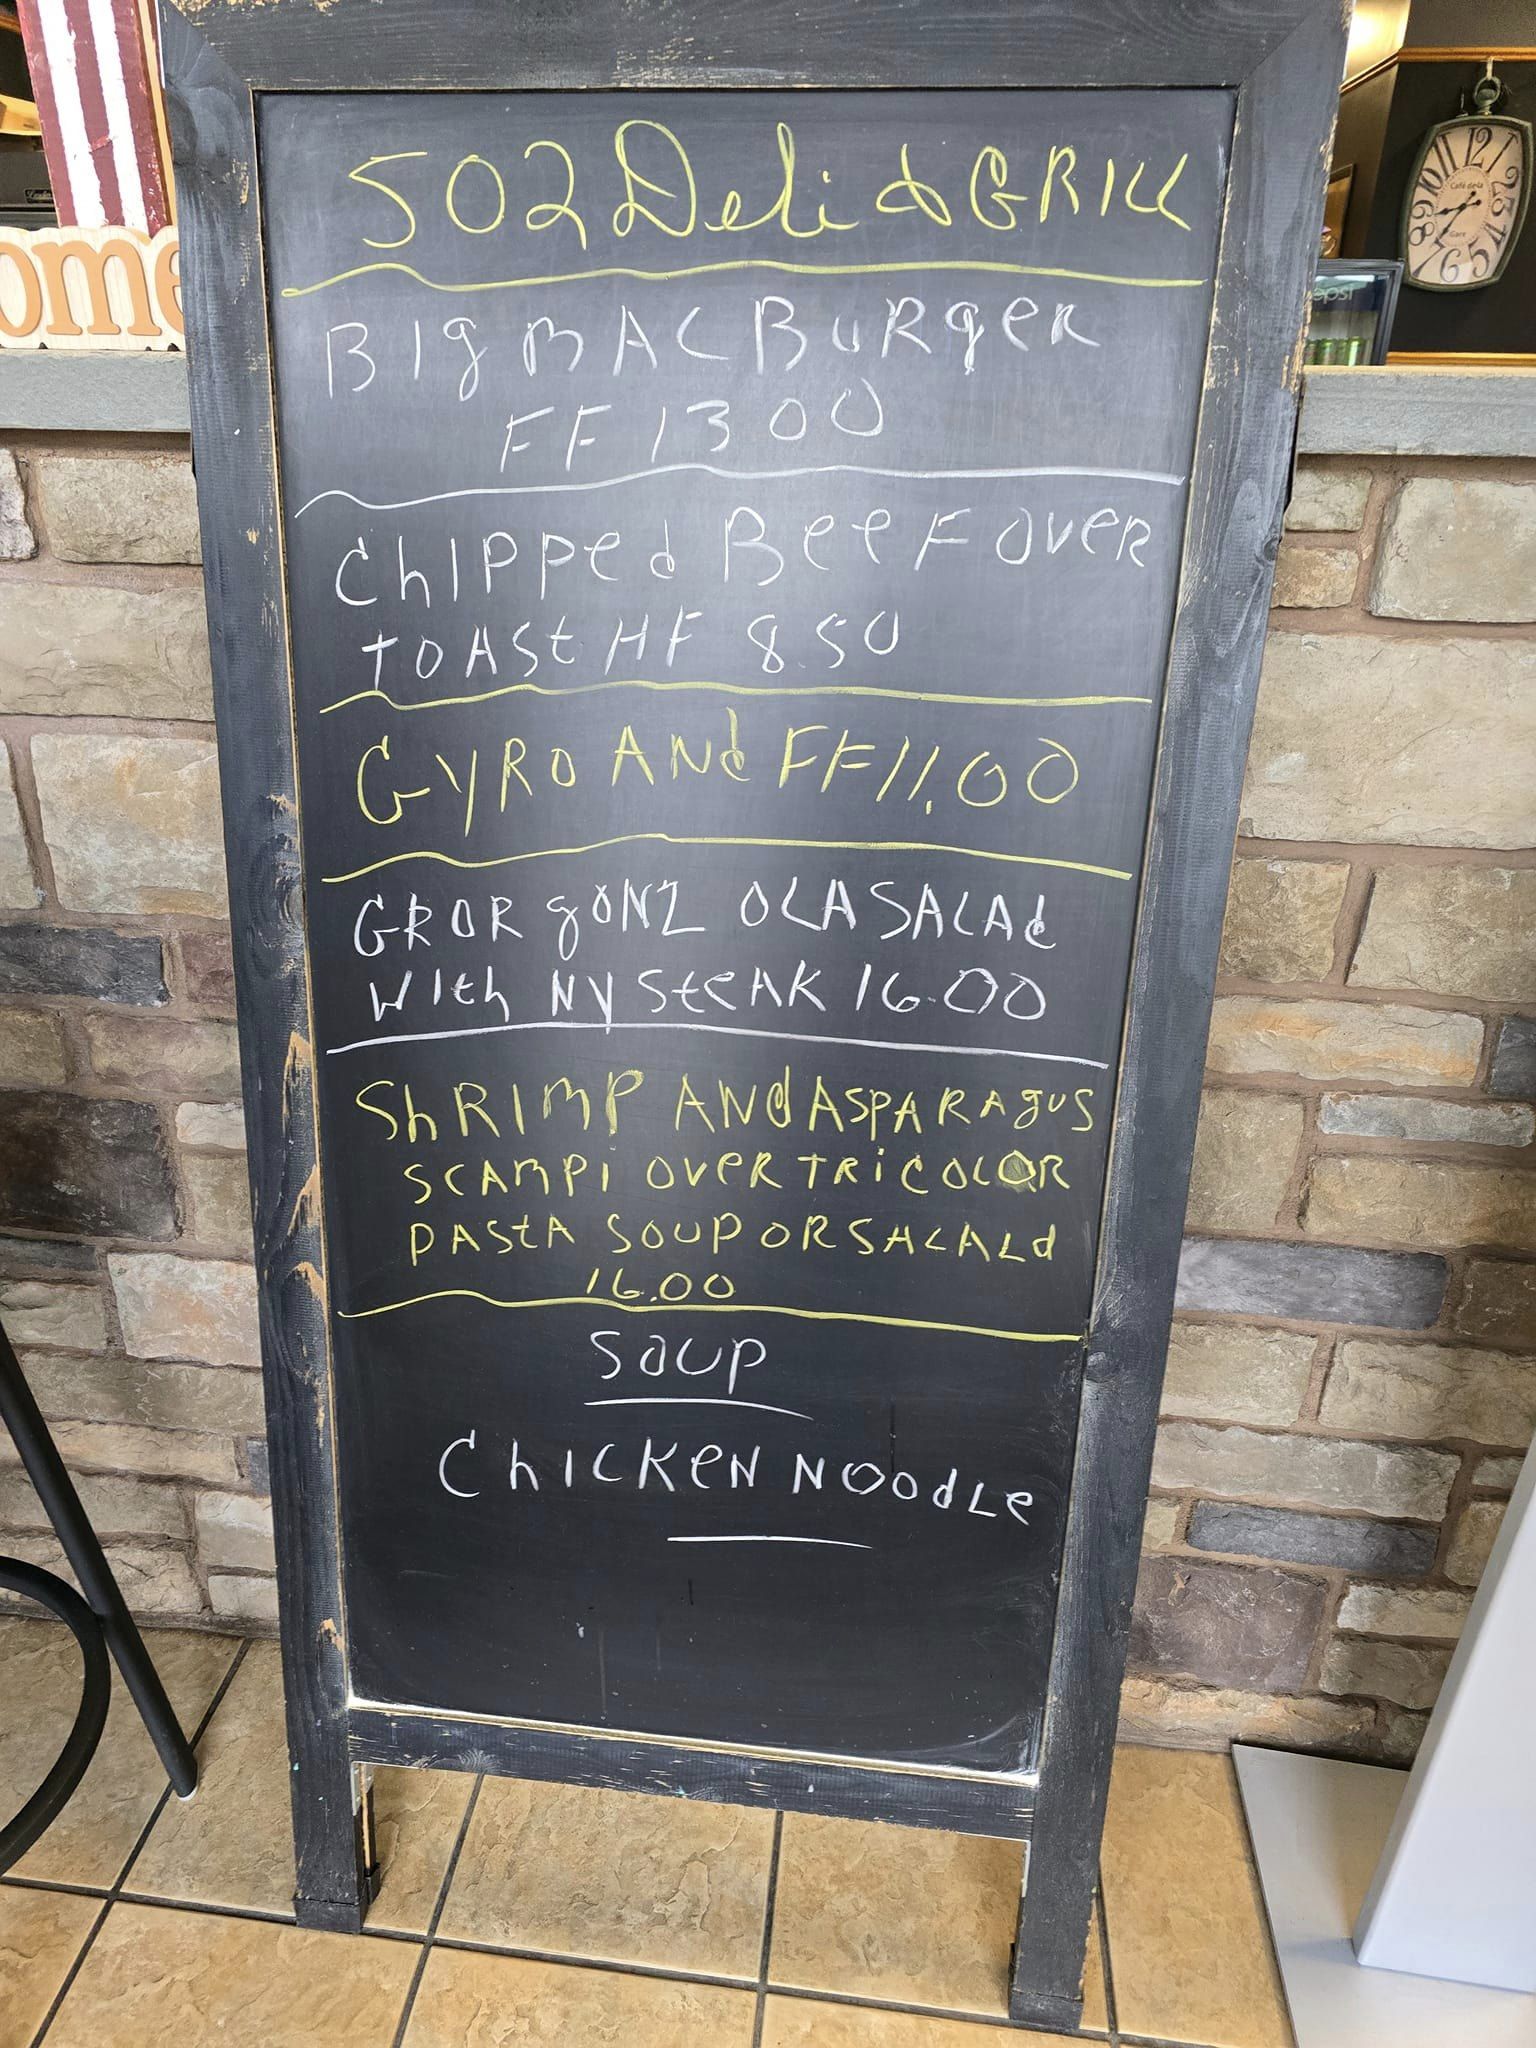 502 Deli & GRILL
BIg mAC BuRgeR
FF 13 00
ChIPPed BeeF OveR
tOASt HF 8.50
GYRO ANd FF 11.00
GRORgONZ OLA SALAd
WIth NY SteAK 16.00
ShRImP ANd ASPARAgUS
SCAmPi OVeR TRiCOLOR
PAStA SOUP OR SALALd
16.00
SOUP
ChICKeN NOOdLe
ome
epsi
12
1
2
3
4
5
6
7
8
9
10
11
Café de la
Gare